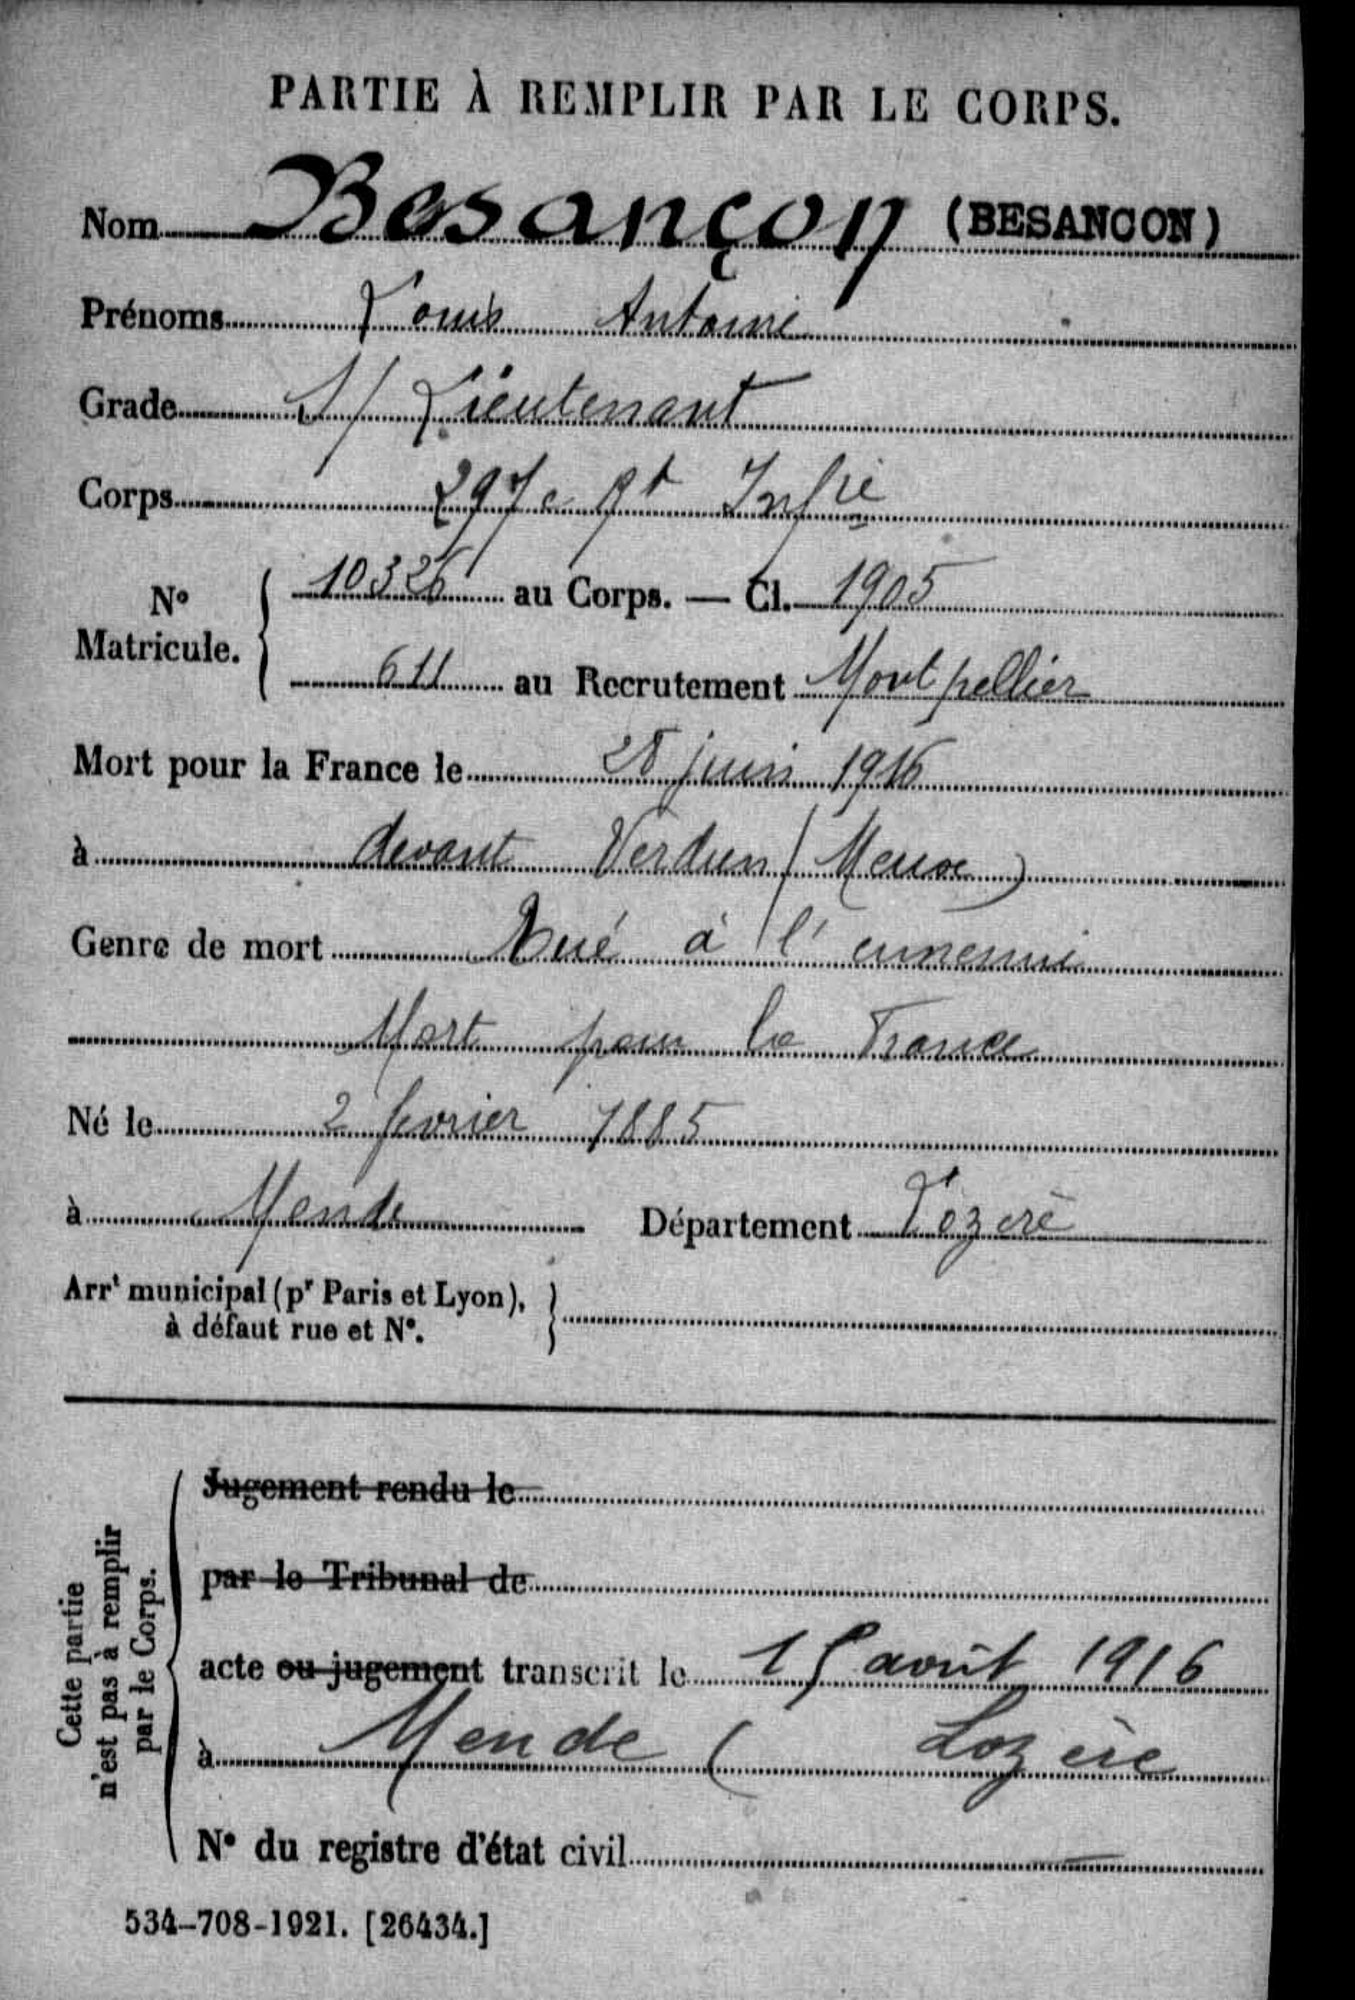 PARTIE À REMPLIR PAR LE CORPS.
Nom Besançon (BESANCON)
Prénoms Louis Antoine
Grade S/ Lieutenant
Corps 297e Rt Infie
N° Matricule. { 10326 au Corps. — Cl. 1905
611 au Recrutement Montpellier
Mort pour la France le 28 juin 1916
à devant Verdun (Meuse)
Genre de mort Tué à l'ennemi
Mort pour la France
Né le 2 fevrier 1885
à Mende Département Lozère
Arrt municipal (pr Paris et Lyon),
à défaut rue et N°.
Cette partie
n'est pas à remplir
par le Corps.
Jugement rendu le
par le Tribunal de
acte ou jugement transcrit le 15 août 1916
à Mende ( Lozère
N° du registre d'état civil —
534-708-1921. [26434.]